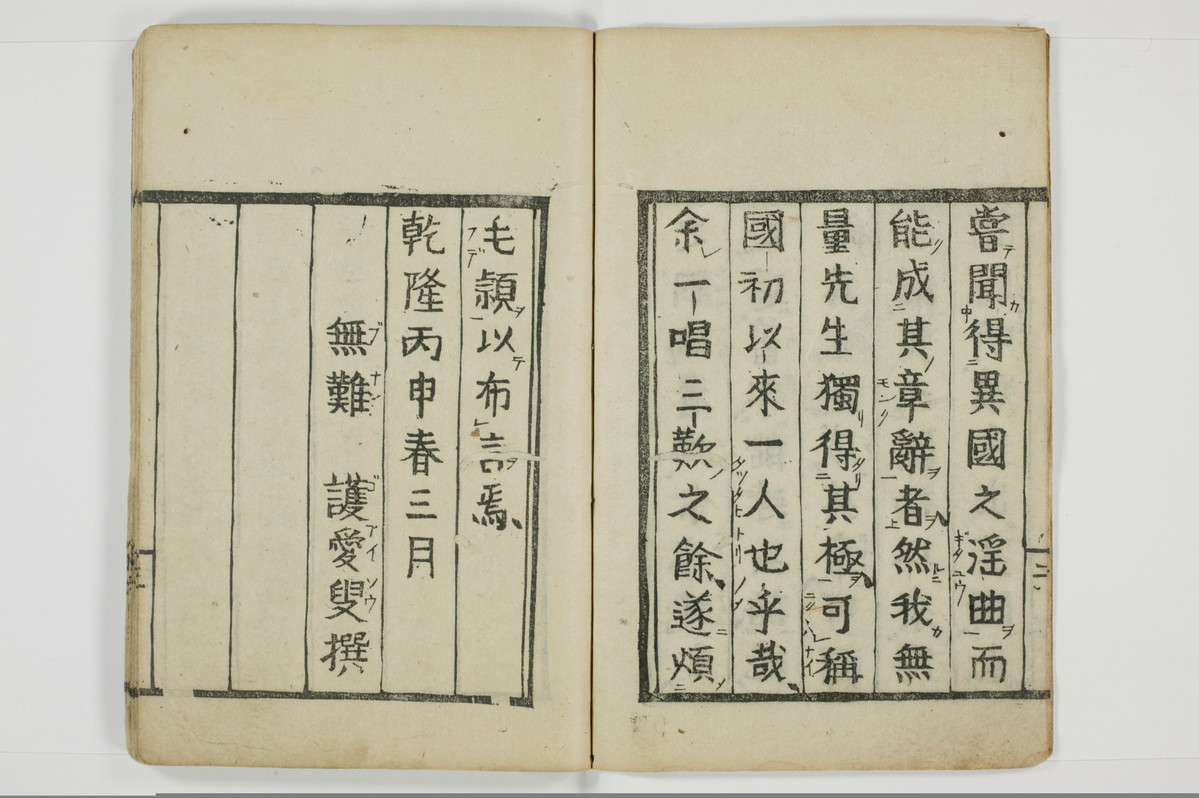 嘗聞得異國之淫曲而
能成其章辭者然我無
量先生獨得其極可稱
國初以來一人也乎哉
余一唱三歎之餘遂煩
毛頴以布言焉
乾隆丙申春三月
無難 護愛叟撰